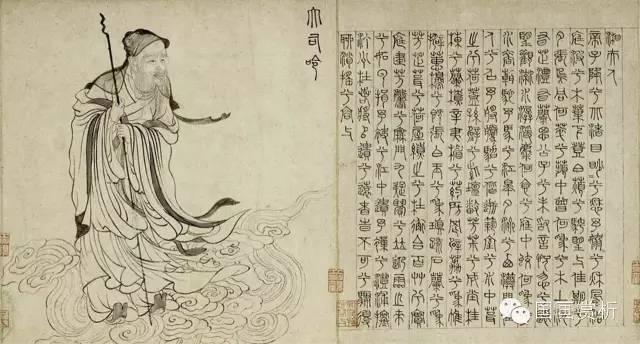 湘夫人
帝子降兮北渚目眇眇兮愁予嫋嫋兮秋風洞
庭波兮木葉下登白薠兮騁望與佳期兮
夕張鳥何萃兮蘋中罾何為兮木上沅
有芷兮澧有蘭思公子兮未敢言荒忽兮遠
望觀流水兮潺湲麋何食兮庭中蛟何為
兮水裔朝馳余馬兮江皋夕濟兮西澨聞佳
人兮召予將騰駕兮偕逝築室兮水中葺
之兮荷蓋蓀壁兮紫壇播芳椒兮成堂桂
棟兮蘭橑辛夷楣兮藥房罔薜荔兮為帷
擗蕙櫋兮既張白玉兮為鎮疏石蘭兮為
芳芷葺兮荷屋繚之兮杜衡合百草兮實
庭建芳馨兮廡門九嶷繽兮並迎靈之來
兮如雲捐余袂兮江中遺余褋兮澧浦搴
汀洲兮杜若將以遺兮遠者時不可兮驟得
聊逍遙兮容與
大司命
国画赏析